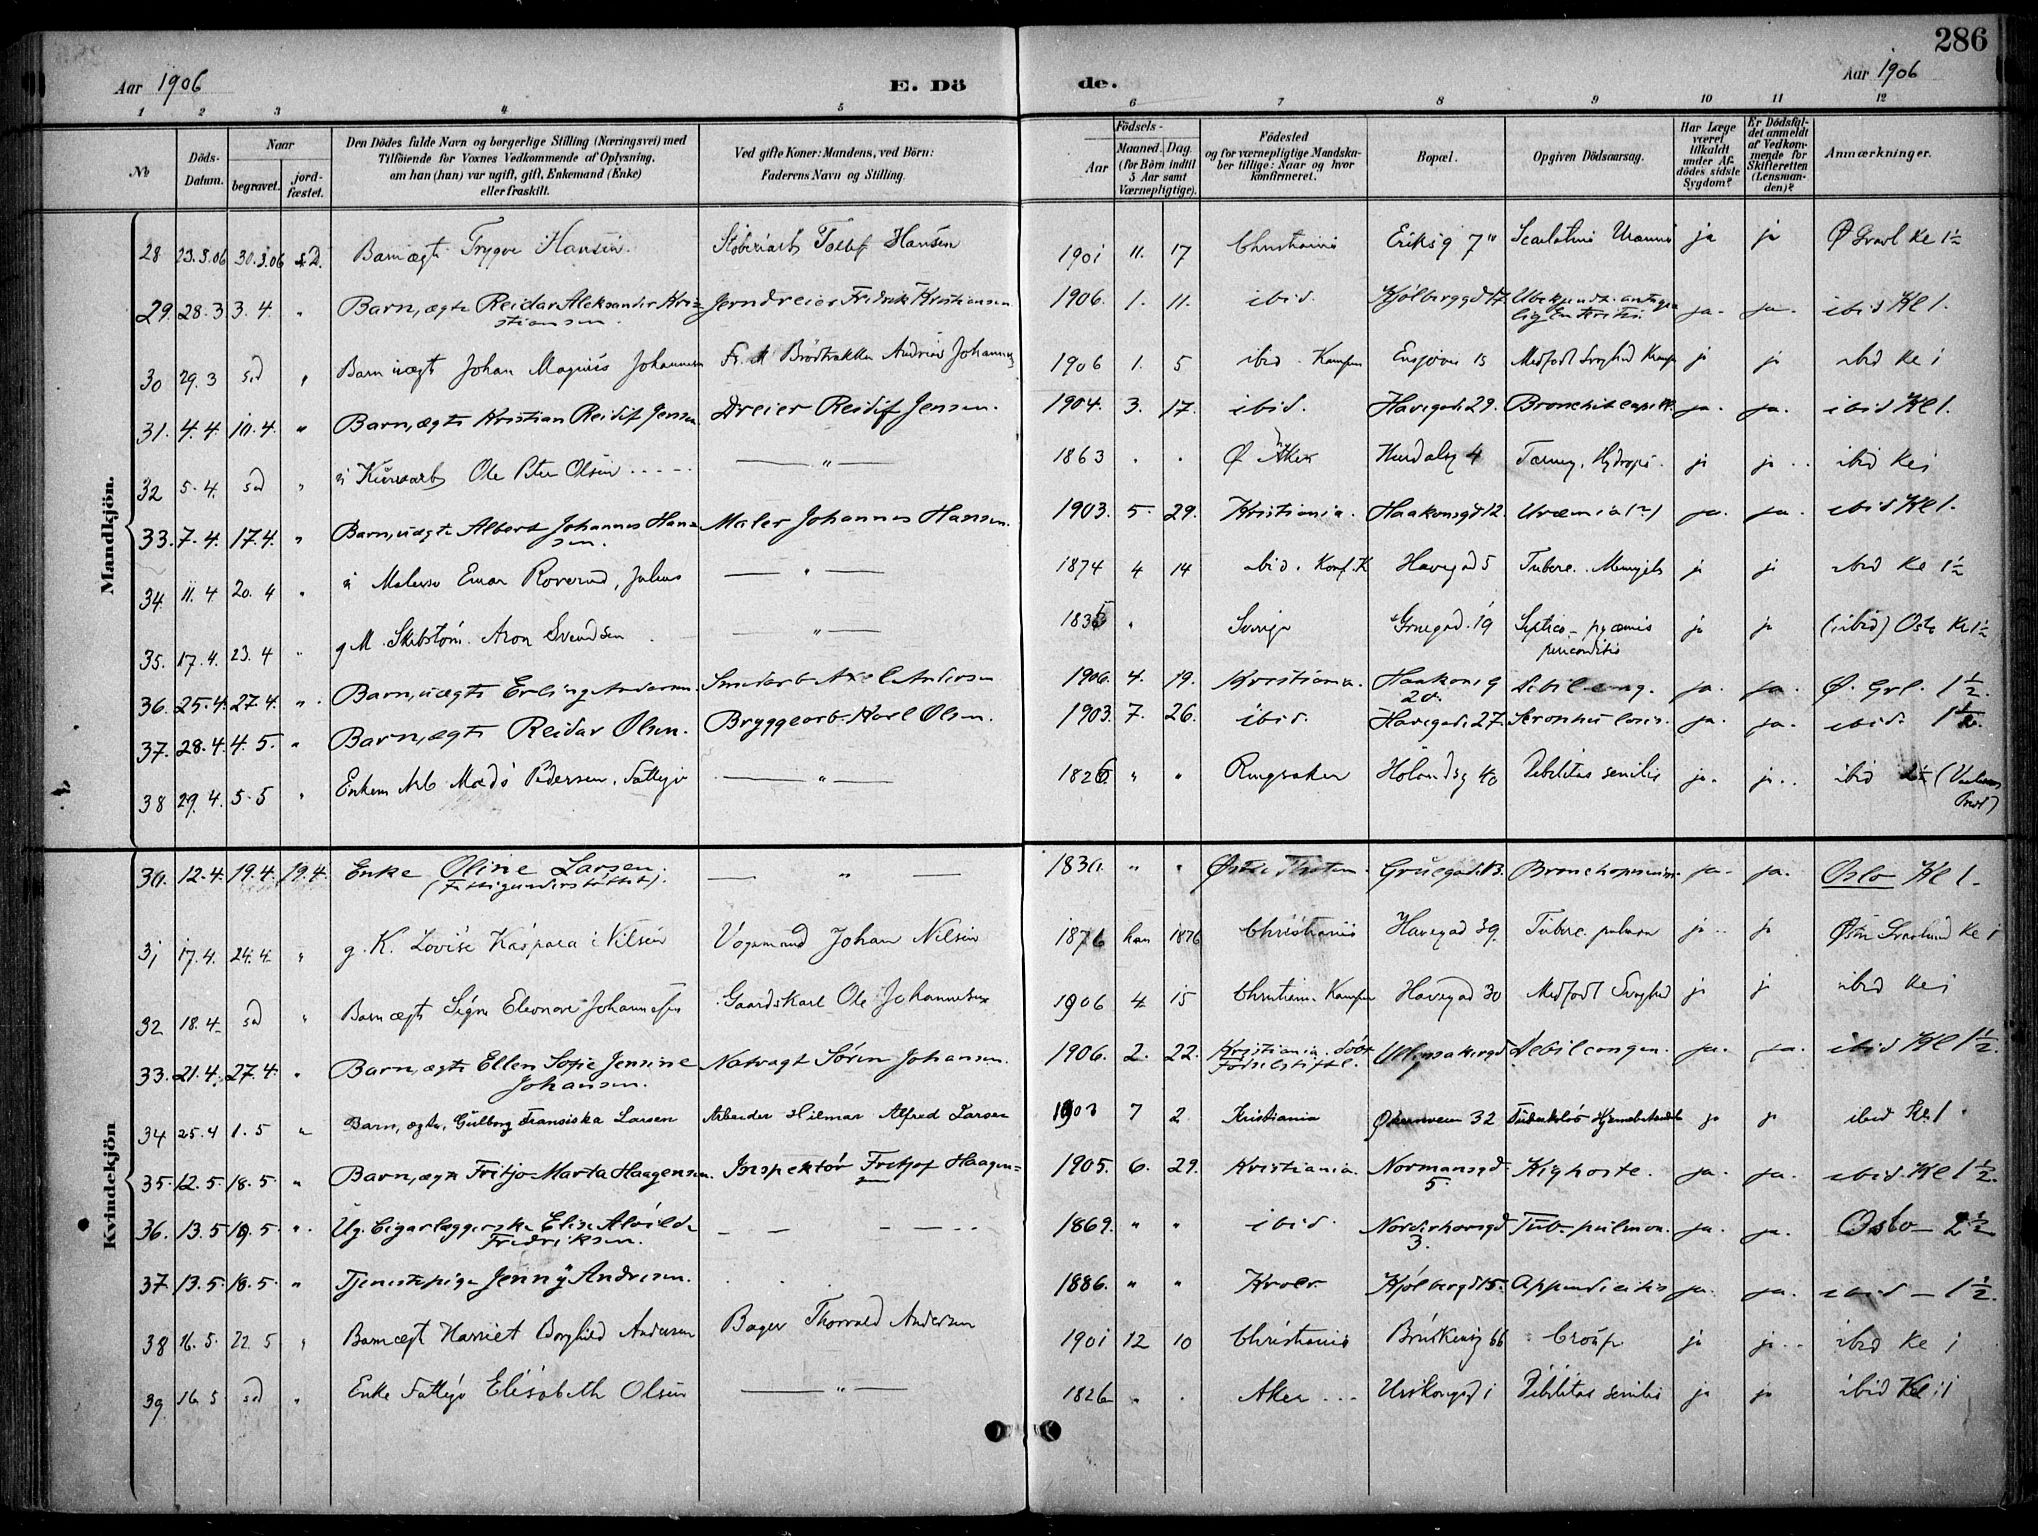 286
Aar 1906
E. Dö
de.
Aar 1906
1 2 3 4 5 6 7 8 9 10 11 12
No
Döds-Datum.
Naar
begravet.
jord-fæstet.
Den Dödes fulde Navn og borgerlige Stilling (Næringsvei) med
Tilföiende for Voxnes Vedkommende af Oplysning,
om han (hun) var ugift, gift, Enkemand (Enke)
eller fraskilt.
Ved gifte Koner: Mandens, ved Börn:
Faderens Navn og Stilling.
Födsels-
Aar
Maaned. Dag.
(for Börn indtil
5 Aar samt
Værnepligtige).
Födested
og for værnepligtige Mandska-
ber tillige: Naar og hvor
konfirmeret.
Bopæl.
Opgiven Dödsaarsag.
Har Læge
været
tilkaldt
under Af-
dödes sidste
Sygdom?
Er Dödsfal-
det anmeldt
af Vedkom-
mende for
Skifteretten
(Lensman-
den)?
Anmærkninger.
Mandkjön.
28 23.3.06 30.3.06 s.D. Barn ægt Trygve Hansen. Hansen 1901 11. 17 Christiania Eriksg 7" ja ja Ø Gravl Kl 1½
29. 28.3 3.4. " Barn, ægte Reidar Aleksander Kri-
stiansen. Jerndreier Fredrik Kristiansen 1906. 1. 11. ibid. Kjølberggd 17. ja. ja. ibid Kl 1.
30 29.3 sd " Barn uægt Johan Magnus Johannesen Andreas 1906 1. 5 ibid. Kampen Ensjøvn 15 Medfødt Svaghed ja ja ibid Kl 1
31. 4.4. 10.4. " Barn, ægte Kristian Reidif Jensen. Dreier Reidif Jensen. 1904. 3. 17. ibid. Havegade 29. ja. ja. ibid Kl 1.
32 5.4. sd " Ole Peter Olsen — " — 1863 " " Ø Aker Hurdalsg 4 Hydrops. ja ja.. ibid Kl 1
33. 7.4. 17.4. " Barn, uægte Albert Johannes Han-
sen. Maler Johannes Hansen. 1903. 5. 29. Kristiania. Haakonsgd 12. Uræmia ja. ja. ibid Kl 1.
34 11.4 20.4 " Einar Roverud, Julius — " — 1874 4 14 ibid. Konf. K Havegad 5 Tuberc. ja ja ibid Kl 1½
35. 17.4. 23.4 " g M. Aron Svendsen — " — 1835 " Sverige Gruegad. 19 Septico-pyæmia
ja ja (ibid) Oslo Kl 1½
36. 25.4. 27.4. " Barn, uægte Erling Andersen Smedarb Axel Andersen 1906. 4. 19. Kristiania. Haakonsg
20. Debil cong. ja. ja. Ø. Grl. 1½.
37. 28.4. 4.5. " Barn, ægte Reidar Olsen. Bryggearb. Karl Olsen. 1903. 7. 26. ibid. Havegade 27. ja. ja. ibid. 1½.
38 29.4. 5.5 " Enkem Arb Mads Pedersen, — " — 1826. " " Ringsaker Hölandsg 40 Debilitas senilis ja. ja.. ibid
Kvindekjön
30. 12.4. 19.4. 19.4. Enke Oline Larsen.
(Fattigunderstøttet). — " — " " Østre Thoten. Gruegade 13. ja. ja. Oslo Kl 1.
31 17.4. 24.4. " g. K. Lovise Kaspara Nilsen Vognmand Johan Nilsen 1876 han 1876 Christiania Havegad 39. Tuberc. pulmon ja.. ja Kl 1
32 18.4. sd " Barn ægt Signe Eleonore Johannesen Gaardskarl Ole Johannesen 1906 4. 15 Christian. Kampen Havegad 30 Medfødt Svaghed ja ja ibid Kl 1
33. 21.4. 27.4. " Barn, ægte Ellen Sofie Jensine
Johansen. Natvagt Sören Johansen. 1906. 2. 22. Kristiania. døbt
Fødselsstift. Debil congen. ja. ja. ibid Kl 1½.
34 25.4 1.5 " Barn, ægte, Gulborg Fransiska Larsen Arbeider Hilmar Alfred Larsen 1903 7 2. Kristiania Økernveien 32 ja ja ibid Kl. 1.
35. 12.5. 18.5. " Barn, ægte Fritjo Marta Haagensen. Inspektör Fritjof Haagen-
sen 1905. 6. 29. Kristiania. Normansgd
5. Kighoste. ja. ja. ibid. Kl 1½.
36. 13.5. 19.5 " Ug. Cigarlæggerske Elise Alvilde
Fredriksen. — — — 1869. " " ibid. Norderhovsgd
3. Tub. pulmon. ja. ja. Oslo — 2½
37. 13.5. 18.5. " Tjenestepige Jenny Andresen. 1886. " " Kjölberggd 15. Appendicitis ja. ja. ibid — 1½.
38 16.5. 22.5 " Barn ægt Harriet Borghild Andersen Bager Thorvald Andersen 1901 12 10 Christiania 66 Croup ja ja.. ibid Kl 1
39 16.5 sd " Enke Fattigv Elisabeth Olsen — " — 1826 " . Aker ... Urskougsgd 1 Debilitas senilis ja ja ibid Kl 1